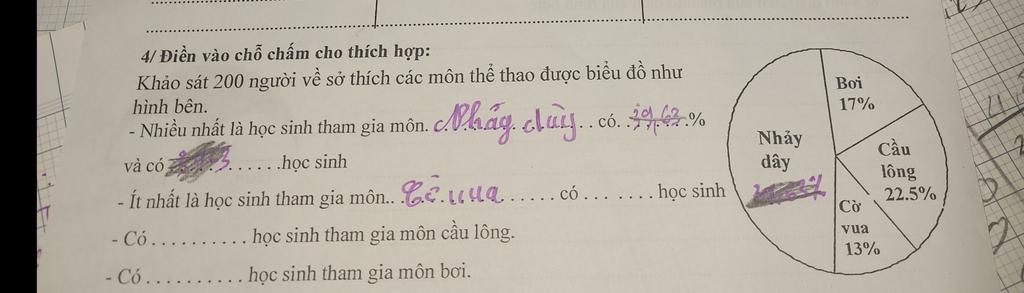 4/ Điền vào chỗ chấm cho thích hợp:
Khảo sát 200 người về sở thích các môn thể thao được biểu đồ như
hình bên.
- Nhiều nhất là học sinh tham gia môn. Nhảy dây . . có. . %
và có . . . . . . .học sinh
- Ít nhất là học sinh tham gia môn.. . . . . . . có . . . . . . . học sinh
- Có . . . . . . . . . . học sinh tham gia môn cầu lông.
- Có . . . . . . . . . . học sinh tham gia môn bơi.
Bơi
17%
Nhảy
dây
Cầu
lông
22.5%
Cờ
vua
13%